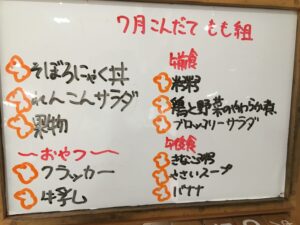 7月こんだて もも組
そぼろにゃく丼
れんこんサラダ
果物
〜おやつ〜
クラッカー
牛乳
午前食
粉粥
鶏と野菜のやわらか煮
ブロッコリーサラダ
午後食
きなこ粥
やさいスープ
バナナ